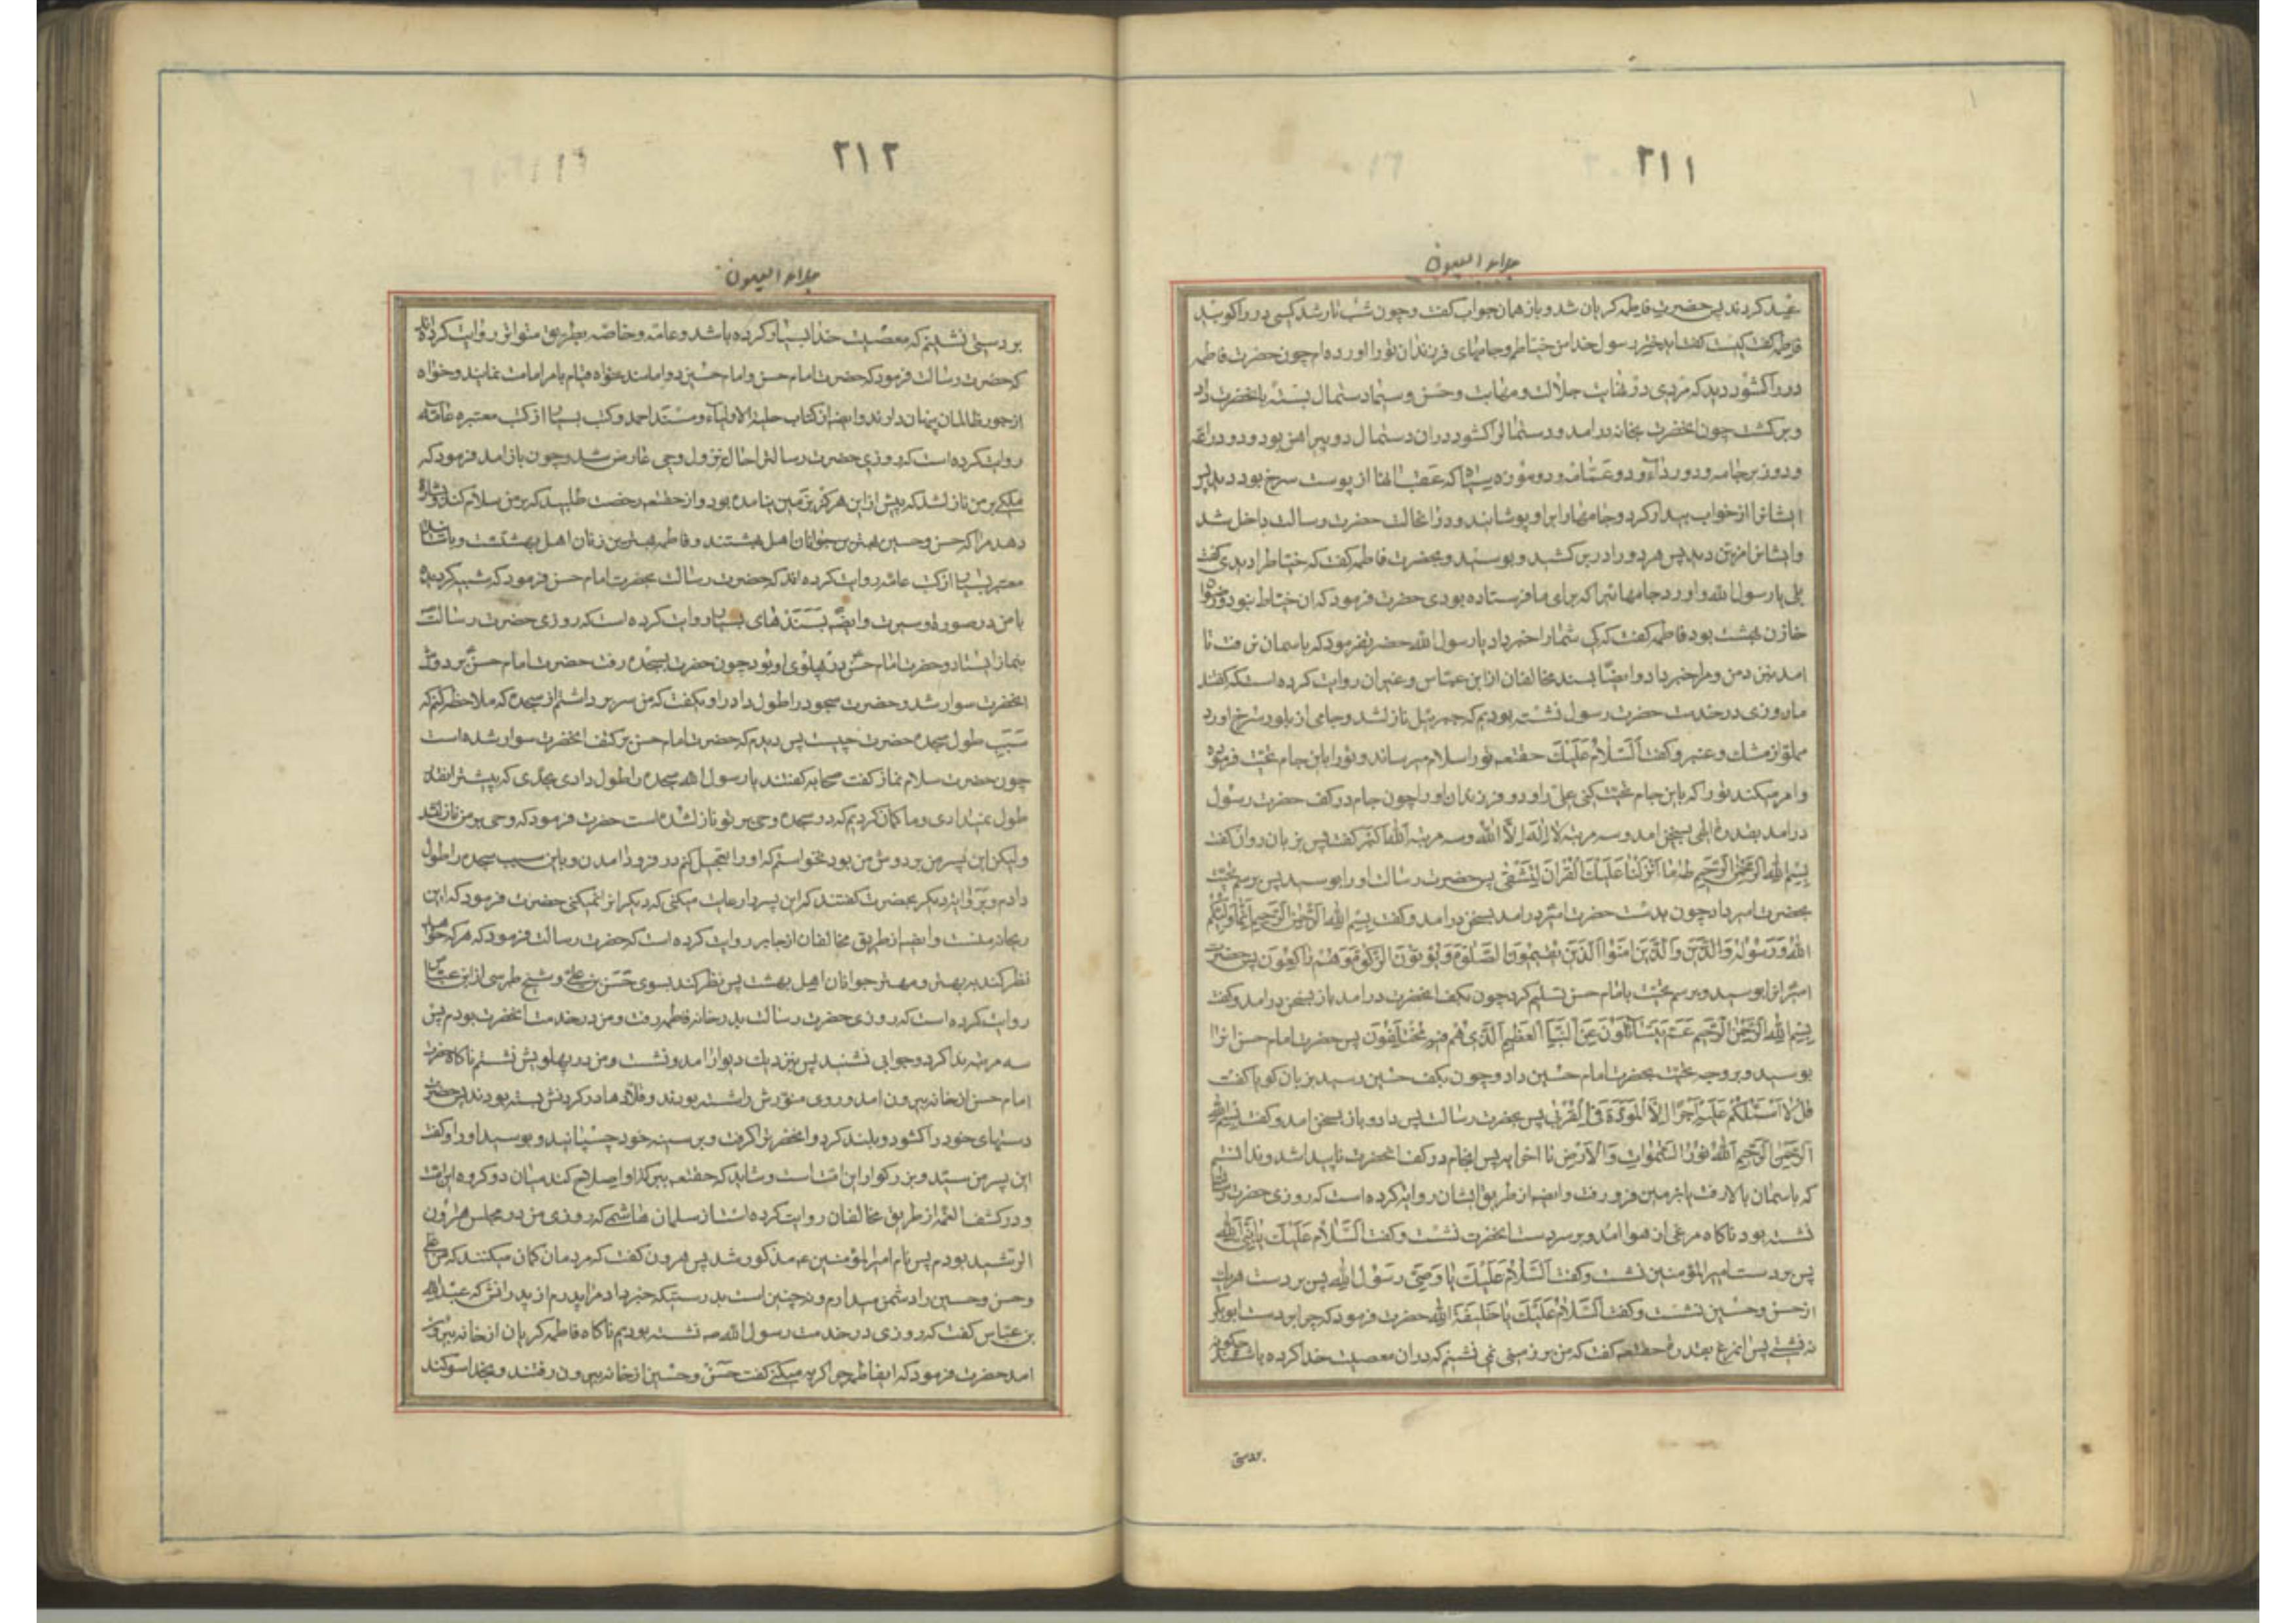 ۲۱۱
جلاء العیون
عید کردند پس حضرت فاطمه کریان شد و باز همان جواب کفت و چون شب تار شد کسی در را کوبید
فاطمه کفت کیست کفت ای دختر رسول خدا من خیاطم و جامهای فرزندان تو را اورده ام چون حضرت فاطمه
در را کشود دید که مردی در نهایت جلالت و مهابت و حسن و سیما دستمال بسته بانحضرت داد
و برکشت چون انحضرت بخانه در امد و دستمال را کشود در ان دستمال دو پیراهن بود و دو دراعه
و دو زیرجامه و دو رداء و دو عمامه و دو موزه سیاه که عقب انها از پوست سرخ بود پس
ایشانرا از خواب بیدار کرد و جامها را بر او پوشانید و در انحالت حضرت رسالت داخل شد
و ایشانرا مزین دید پس هر دو را در بر کشید و بوسید و بحضرت فاطمه کفت که خیاط را دیدی کفت
بلی یا رسول الله و اورد جامهائیرا که برای ما فرستاده بودی حضرت فرمود که ان خیاط نبود
خازن بهشت بود فاطمه کفت که کی شما را خبر داد یا رسول الله حضرت فرمود که باسمان نرفت تا
امد بنزد من و مرا خبر داد و ایضا بسند مخالفان از ابن عباس و غیر ان روایت کرده است که کفتند
ما روزی در خدمت حضرت رسول نشسته بودیم که جبرئیل نازل شد و جامی از بلور سرخ اورد
مملو از مشک و عنبر و کفت اَلسَّلامُ عَلَیْکَ حقتعم تو را سلام میرساند و تو را باین جام تحیت فرموده
و امر میکند تو را که باین جام تحیت کنی علی را و دو فرزندان او را چون جام در کف حضرت رسول
در امد بقدرت الهی بسخن امد و سه مرتبه لا اله الا الله و سه مرتبه الله اکبر کفت پس بزبان روان کفت
بِسْمِ اللهِ الرَّحْمنِ الرَّحیمِ طه ما اَنْزَلْنا عَلَیْکَ الْقُرانَ لِتَشْقی پس حضرت رسالت او را بوسید پس برسم تحیت
بحضرت امیر داد چون بدست حضرت امیر در امد بسخن در امد و کفت بِسْمِ اللهِ الرَّحْمنِ الرَّحیمِ اِنَّما وَلِیُّکُمُ
اللهُ وَرَسُولُهُ وَالَّذینَ امَنُوا الَّذینَ یُقیمُونَ الصَّلوةَ وَیُؤْتُونَ الزَّکوةَ وَهُمْ راکِعُونَ پس حضرت
امیر انرا بوسید و برسم تحیت بامام حسن تسلیم کرد چون بکف انحضرت در امد باز بسخن در امد و کفت
بِسْمِ اللهِ الرَّحْمنِ الرَّحیمِ عَمَّ یَتَسائَلُونَ عَنِ النَّبَاِ الْعَظیمِ الَّذی هُمْ فیهِ مُخْتَلِفُونَ پس حضرت امام حسن انرا
بوسید و بر وجه تحیت بحضرت امام حسین داد و چون بکف حسین رسید بزبان کویا کفت
قُلْ لا اَسْئَلُکُمْ عَلَیْهِ اَجْرًا اِلَّا الْمَوَدَّةَ فِی الْقُرْبی پس بحضرت رسالت پس داد و باز بسخن امد و کفت بِسْمِ اللهِ
الرَّحْمنِ الرَّحیمِ اَللهُ نُورُ السَّمواتِ وَالْاَرْضِ تا اخر ایه پس انجام در کف انحضرت ناپیدا شد و ندانستم
که باسمان بالا رفت یا بزمین فرو رفت و ایضا از طریق ایشان روایة کرده است که روزی حضرت رسالت
نشسته بود ناکاه مرغی از هوا امد و بر سر دست انحضرت نشست و کفت اَلسَّلامُ عَلَیْکَ یا نَبِیَّ اللهِ
پس بر دست امیرالمؤمنین نشست و کفت اَلسَّلامُ عَلَیْکَ یا وَصِیَّ رَسُولِ اللهِ پس بر دست هر یک
از حسن و حسین نشست و کفت اَلسَّلامُ عَلَیْکَ یا خَلیفَةَ اللهِ حضرت فرمود که چرا بر دست ابوبکر
نه نشستی پس انمرغ بقدرت حقتعم کفت که من بر زمینی نمی نشینم که در ان معصیت خدا کرده باشند چکونه
بر دستی
۲۱۲
جلاء العیون
بر دستی نشینم که معصیت خدا بسیار کرده باشد و عامه و خاصه بطریق متواتر روایت کرده اند
که حضرت رسالت فرمود که حضرت امام حسن و امام حسین دو امامند خواه قیام بامر امامت نمایند و خواه
از جور ظالمان پنهان دارند و ایضا از کتاب حلیة الاولیاء و مسند احمد و کتب بسیار از کتب معتبره عامه
روایت کرده است که روزی حضرت رسالت را حال نزول وحی عارض شد و چون باز امد فرمود که
ملکی بر من نازل شد که پیش از این هرکز بزمین نیامده بود و از حقتعم رخصت طلبید که بر من سلام کند و بشارة
دهد مرا که حسن و حسین بهترین جوانان اهل بهشتند و فاطمه بهترین زنان اهل بهشتست و باسناد
معتبر بسیار از کتب عامه روایت کرده اند که حضرت رسالت بحضرت امام حسن فرمود که شبیه کردیده
با من در صورت و سیرت و ایضا بسندهای بسیار روایت کرده است که روزی حضرت رسالت
بنماز ایستاد و حضرت امام حسن در پهلوی او بود چون حضرت بسجده رفت حضرت امام حسن بر دوش
انحضرت سوار شد و حضرت سجود را طول داد راوی کفت که من سر برداشتم از سجده که ملاحظه کنم که
سبب طول سجده حضرت چیست پس دیدم که حضرت امام حسن بر کتف انحضرت سوار شده است
چون حضرت سلام نماز کفت صحابه کفتند یا رسول الله سجده را طول دادی بحدی که پیشتر اینقدر
طول نمیدادی و ما کمان کردیم که در سجده وحی بر تو نازل شده است حضرت فرمود که وحی بر من نازل نشد
ولیکن این پسر من بر دوش من بود نخواستم که او را تعجیل کنم در فرود امدن و باین سبب سجده را طول
دادم و بروایة دیکر بحضرت کفتند که این پسر را رعایت میکنی که دیکرانرا نمیکنی حضرت فرمود که این
ریحانه منست و ایضا از طریق مخالفان از جابر روایت کرده است که حضرت رسالت فرمود که هر که خواهد
نظر کند به بهتر و مهتر جوانان اهل بهشت پس نظر کند بسوی حسن بن علی و شیخ طبرسی از ابن عباس
روایت کرده است که روزی حضرت رسالت بدر خانه فاطمه رفت و من در خدمت انحضرت بودم پس
سه مرتبه ندا کرد و جوابی نشنید پس بنزدیک دیوار امد و نشست و من در پهلویش نشستم ناکاه حضرت
امام حسن از خانه بیرون امد و روی منورش را شسته بودند و قلاده ها در کردنش بسته بودند پس حضرت
دستهای خود را کشود و بلند کرد و انحضرت را کرفت و بر سینه خود چسپانید و بوسید او را و کفت
این پسر من سید و بزرکوار این امت است و شاید که حقتعم ببرکت او اصلاح کند میان دو کروه این امت
و در کشف الغمه از طریق مخالفان روایت کرده است از سلمان هاشمی که روزی من در مجلس هرون
الرشید بودم پس نام امیرالمؤمنین عم مذکور شد پس هرون کفت که مردمان کمان میکنند که من علی
و حسن و حسین را دشمن میدارم و نه چنین است بدرستیکه خبر داد مرا پدرم از پدرانش که عبدالله
بن عباس کفت که روزی در خدمت رسول الله صم نشسته بودیم ناکاه فاطمه کریان از خانه بیرون
امد حضرت فرمود که ایفاطمه چرا کریه میکنی کفت حسن و حسین از خانه بیرون رفتند و بخدا سوکند